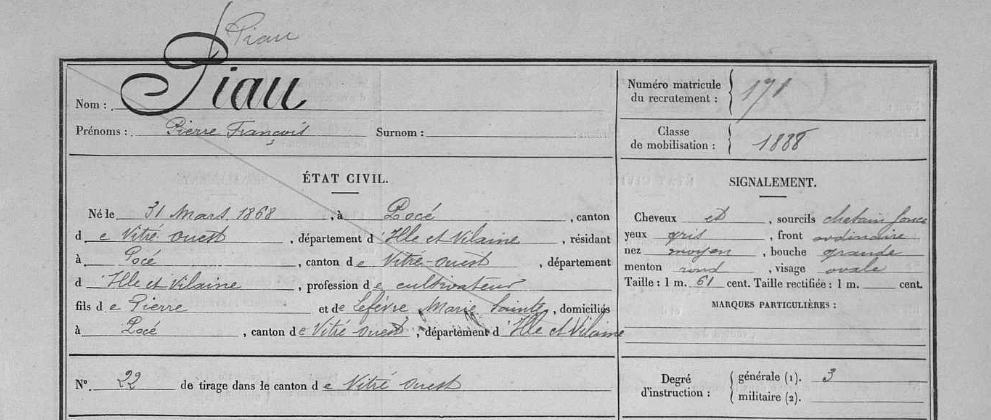 Piau
Nom : Piau
Prénoms : Pierre François Surnom :
Numéro matricule
du recrutement : 171
Classe
de mobilisation : 1888
ÉTAT CIVIL.
Né le 31 Mars 1868, à Pocé, canton
d e Vitré Ouest, département d'Ille et Vilaine, résidant
à Pocé, canton de Vitré-Ouest, département
d'Ille et Vilaine, profession de cultivateur
fils de Pierre et de Lefèvre Marie Sainte, domiciliés
à Pocé, canton de Vitré Ouest, département d'Ille et Vilaine
N° 22 de tirage dans le canton de Vitré Ouest
SIGNALEMENT.
Cheveux et, sourcils chatain foncé
yeux gris, front ordinaire
nez moyen, bouche grande
menton rond, visage ovale
Taille : 1 m. 61 cent. Taille rectifiée : 1 m. cent.
MARQUES PARTICULIÈRES :
Degré
d'instruction :
générale (1). 3
militaire (2).